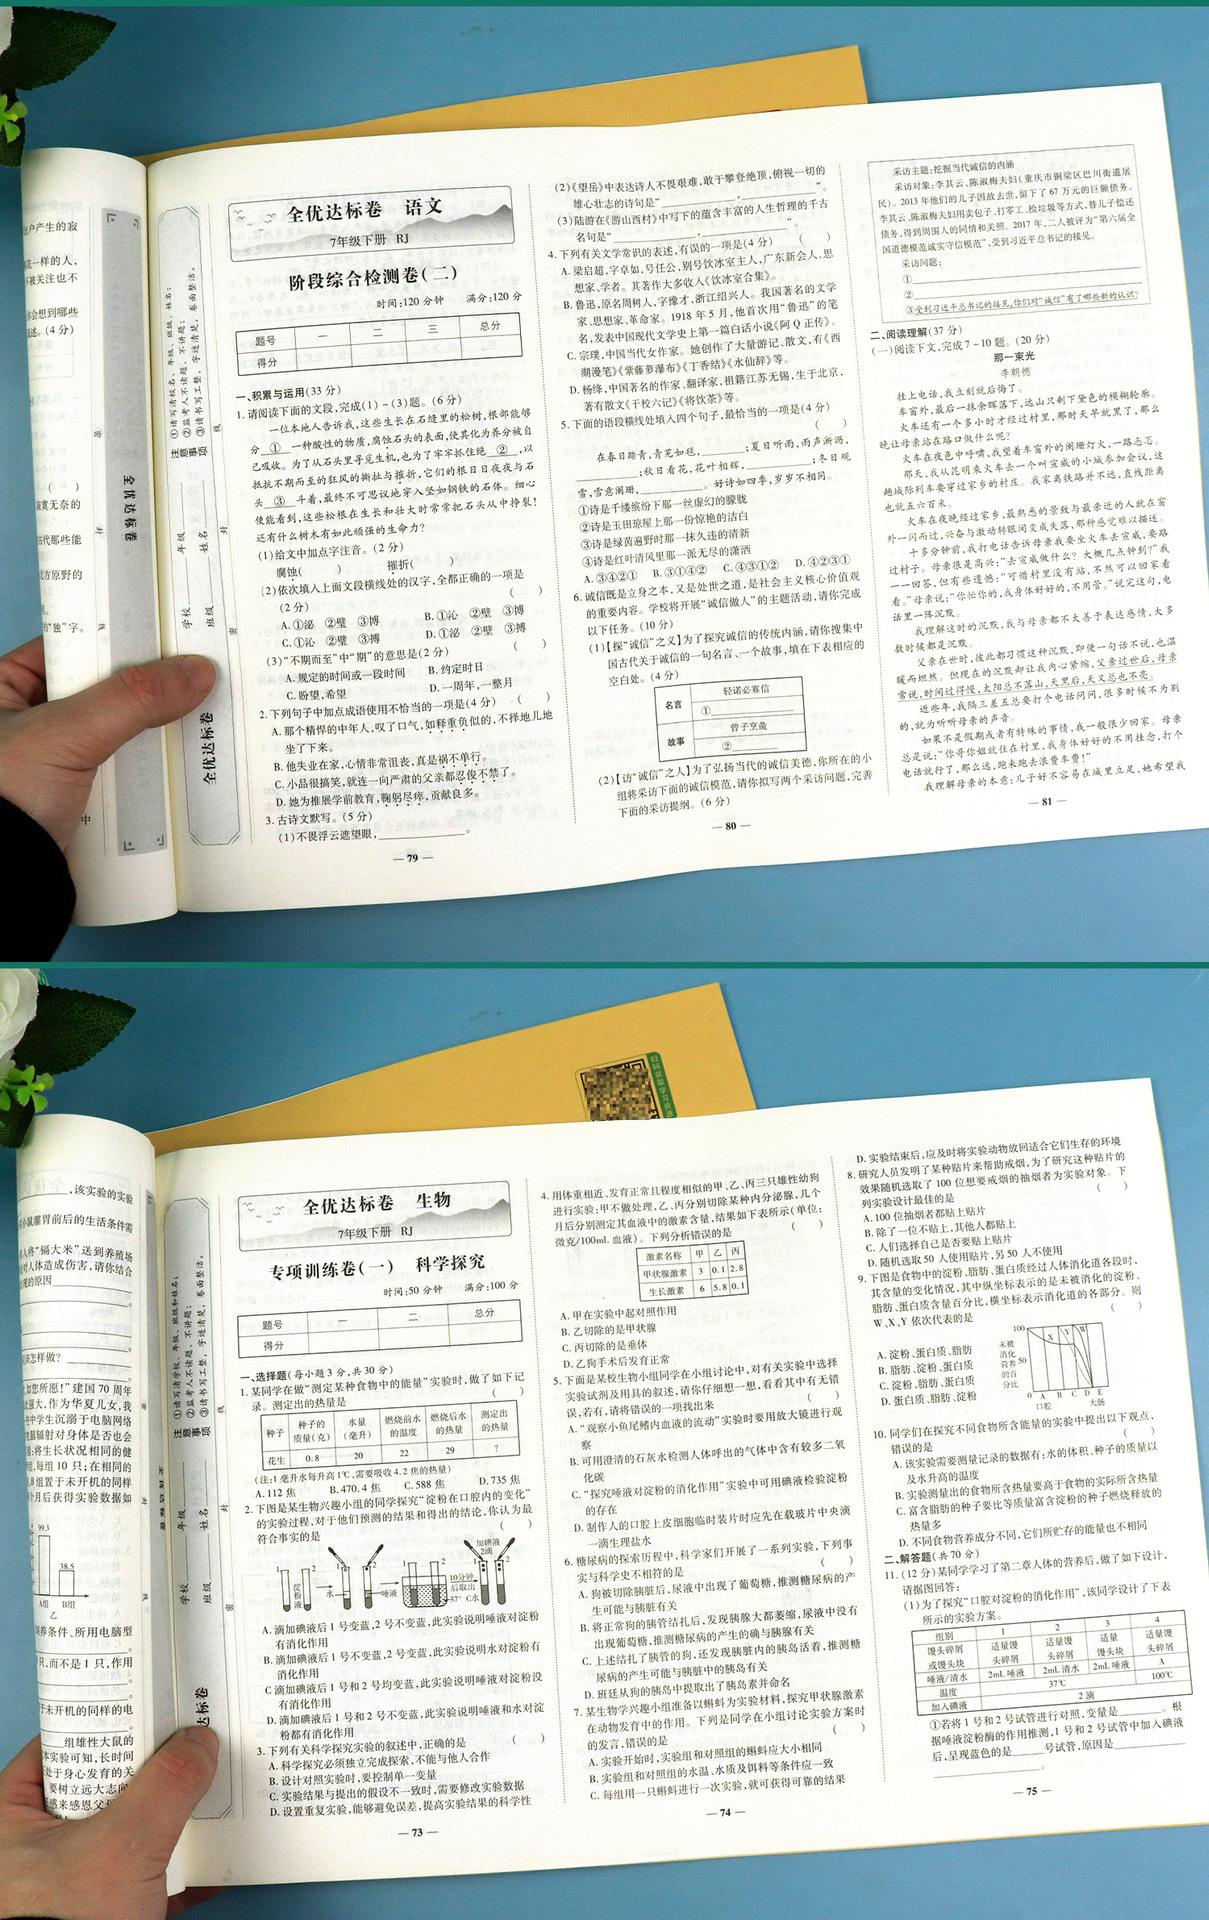 全优达标卷 语文
7年级下册 RJ
阶段综合检测卷(二)
时间:120分钟 满分:120分
题号 一 二 三 总分
得分
一、积累与运用(33分)
1.请阅读下面的文段,完成(1)~(3)题。(6分)
一位本地人告诉我,这些生长在石缝里的松树,根部能够
分 ① 一种酸性的物质,腐蚀石头的表面,使其化为养分被自
己吸收。为了从石头里寻觅生机,也为了牢牢抓住绝 ② ,以
抵抗不期而至的狂风的撕扯与摧折,它们的根日日夜夜与石
头 ③ 斗着,最终不可思议地穿入坚如钢铁的石体。细心
便能看到,这些松根在生长和壮大时常常把石头从中挣裂!
还有什么树木有如此顽强的生命力?
(1)给文中加点字注音。(2分)
腐蚀( ) 摧折( )
(2)依次填入上面文段横线处的汉字,全都正确的一项是
(2分) ( )
A.①泌 ②璧 ③博 B.①沁 ②壁 ③博
C.①沁 ②璧 ③搏 D.①泌 ②壁 ③搏
(3)“不期而至”中“期”的意思是(2分) ( )
A.规定的时间或一段时间 B.约定时日
C.盼望,希望 D.一周年,一整月
2.下列句子中加点成语使用不恰当的一项是(4分) ( )
A.那个精悍的中年人,叹了口气,如释重负似的,不择地儿地
坐了下来。
B.他失业在家,心情非常沮丧,真是祸不单行。
C.小品很搞笑,就连一向严肃的父亲都忍俊不禁了。
D.她为推展学前教育,鞠躬尽瘁,贡献良多。
3.古诗文默写。(5分)
(1)不畏浮云遮望眼,________。
— 79 —
(2)《望岳》中表达诗人不畏艰难,敢于攀登绝顶,俯视一切的
雄心壮志的诗句是“________,________”。
(3)陆游在《游山西村》中写下的蕴含丰富的人生哲理的千古
名句是“________,________”。
4.下列有关文学常识的表述,有误的一项是(4分) ( )
A.梁启超,字卓如,号任公,别号饮冰室主人,广东新会人,思
想家、学者。其著作大多收入《饮冰室合集》。
B.鲁迅,原名周树人,字豫才,浙江绍兴人。我国著名的文学
家、思想家、革命家。1918年5月,他首次用“鲁迅”的笔
名,发表中国现代文学史上第一篇白话小说《阿Q正传》。
C.宗璞,中国当代女作家。她创作了大量游记、散文,有《西
湖漫笔》《紫藤萝瀑布》《丁香结》《水仙辞》等。
D.杨绛,中国著名的作家、翻译家,祖籍江苏无锡,生于北京,
著有散文《干校六记》《将饮茶》等。
5.下面的语段横线处填入四个句子,最恰当的一项是(4分)
( )
在春日踏青,青芜如毯,________;夏日听雨,雨声淅沥,
________;秋日看花,花叶相辉,________;冬日观
雪,雪意阑珊,________。好诗如四季,岁岁不相同。
①诗是千缕缤纷下那一丝虚幻的朦胧
②诗是玉田琼屋上那一份惊艳的洁白
③诗是绿茵遍野时那一抹久违的清新
④诗是红叶清风里那一派无尽的潇洒
A.③④②① B.③①④② C.④③①② D.④②③①
6.诚信既是立身之本,又是处世之道,是社会主义核心价值观
的重要内容。学校将开展“诚信做人”的主题活动,请你完成
以下任务。(10分)
(1)【探“诚信”之义】为了探究诚信的传统内涵,请你搜集中
国古代关于诚信的一句名言、一个故事,填在下表相应的
空白处。(4分)
名言 轻诺必寡信
①________
故事 曾子烹彘
②________
(2)【访“诚信”之人】为了弘扬当代的诚信美德,你所在的小
组将采访下面的诚信模范,请你拟写两个采访问题,完善
下面的采访提纲。(6分)
— 80 —
采访主题:挖掘当代诚信的内涵
采访对象:李其云、陈淑梅夫妇(重庆市铜梁区巴川街道居
民)。2013年他们的儿子因故去世,留下了67万元的巨额债务。
李其云、陈淑梅夫妇用卖包子、打零工、捡垃圾等方式,替儿子偿还
债务,得到周围人的同情和关照。2017年,二人被评为“第六届全
国道德模范诚实守信模范”,受到习近平总书记的接见。
采访问题:
①________
②________
③受到习近平总书记的接见,你们对“诚信”有了哪些新的认识?
二、阅读理解(37分)
(一)阅读下文,完成7~10题。(20分)
那一束光
李朝德
挂上电话,我立刻就后悔了。
车窗外,最后一抹余晖落下,远山只剩下黛色的模糊轮廓。
火车还有一个多小时才经过村里,那时天早就黑了,那么
晚让母亲站在路口做什么呢?
火车在夜色中呼啸,我望着车窗外的阑珊灯火,一路忐忑。
那天,我从昆明乘火车去一个叫宣威的小城参加会议,这
趟城际列车要穿过家乡的村庄。我家离铁路并不远,直线距离
也就五六百米。
火车在夜晚经过家乡,最熟悉的景致与最亲近的人就在窗
外一闪而过,兴奋与激动转眼间变成失落,那种感觉难以描述。
十多分钟前,我打电话告诉母亲我要坐火车去宣威,要路
过村子。母亲很是高兴:“去宣威做什么?大概几点钟到?”我
一一回答,但有些遗憾:“可惜村里没有站,不然可以回家看
看。”母亲说:“你忙你的,我身体好好的,不用管。”说完这句,电
话里一阵沉默。
我理解这时的沉默,我与母亲都不太善于表达感情,大多
数时候都是沉默。
父亲在世时,彼此都习惯这种沉默,即使一句话不说,也温
暖而坦然。但现在的沉默却让我内心紧缩,父亲过世后,母亲
常说,时间过得慢,太阳总不落山,天黑后,天又总也不亮。
近些年,我隔三差五总要打个电话问问,很多时候不为别
的,就为听听母亲的声音。
如果不是假期或者有特殊的事情,我一般很少回家。母亲
总是说:“你哥你姐就住在村里,我身体好好的不用挂念,打个
电话就行了,那么远,跑来跑去浪费车费!”
我理解母亲的本意:儿子好不容易在城里立足,她希望我
— 81 —
注意事项
①请写清校名、年级、班级、姓名;
②监考人不读题、不讲题;
③请书写工整,字迹清楚,卷面整洁。
学校 年级
班级 姓名
密 封 线
全优达标卷
全优达标卷
全优达标卷 生物
7年级下册 RJ
专项训练卷(一) 科学探究
时间:50分钟 满分:100分
题号 一 二 总分
得分
一、选择题(每小题3分,共30分)
1.某同学在做“测定某种食物中的能量”实验时,做了如下记
录。测定出的热量是 ( )
种子 种子的质量(克) 水量(毫升) 燃烧前水的温度 燃烧后水的热量 测定出的热量
花生 0.8 20 22 29 ?
(注:1毫升水每升高1℃,需要吸收4.2焦的热量)
A.112焦 B.470.4焦 C.588焦 D.735焦
2.下图是某生物兴趣小组的同学探究“淀粉在口腔内的变化”
的实验过程,对于他们预测的结果和得出的结论,你认为最
符合事实的是 ( )
水 唾液 10分钟后取出 37°C水 加碘液2滴
A.滴加碘液后1号变蓝,2号不变蓝,此实验说明唾液对淀粉
有消化作用
B.滴加碘液后1号不变蓝,2号变蓝,此实验说明水对淀粉有
消化作用
C滴加碘液后1号和2号均变蓝,此实验说明唾液对淀粉没
有消化作用
D.滴加碘液后1号和2号不变蓝,此实验说明唾液和水对淀
粉都有消化作用
3.下列有关科学探究实验的叙述中,正确的是 ( )
A.科学探究必须独立完成探索,不能与他人合作
B.设计对照实验时,要控制单一变量
C.实验结果与提出的假设不一致时,需要修改实验数据
D.设置重复实验,能够避免误差,提高实验结果的科学性
— 73 —
4.用体重相近、发育正常且程度相似的甲、乙、丙三只雄性幼狗
进行实验:甲不做处理,乙、丙分别切除某种内分泌腺,几个
月后分别测定其血液中的激素含量,结果如下表所示(单位:
微克/100mL血液)。下列分析错误的是 ( )
激素名称 甲 乙 丙
甲状腺激素 3 0.1 2.8
生长激素 6 5.8 0.1
A.甲在实验中起对照作用
B.乙切除的是甲状腺
C.丙切除的是垂体
D.乙狗手术后发育正常
5.下面是某校生物小组同学在小组讨论中,对有关实验中选择
实验试剂及用具的叙述,请你仔细想一想,看看其中有无错
误,若有,请将错误的一项找出来 ( )
A.“观察小鱼尾鳍内血液的流动”实验时要用放大镜进行观
察
B.可用澄清的石灰水检测人体呼出的气体中含有较多二氧
化碳
C.“探究唾液对淀粉的消化作用”实验中可用碘液检验淀粉
的存在
D.制作人的口腔上皮细胞临时装片时应先在载玻片中央滴
一滴生理盐水
6.糖尿病的探索历程中,科学家们开展了一系列实验,下列事
实与科学史不相符的是 ( )
A.狗被切除胰脏后,尿液中出现了葡萄糖,推测糖尿病的产
生可能与胰脏有关
B.将正常狗的胰管结扎后,发现胰腺大都萎缩,尿液中没有
出现葡萄糖,推测糖尿病的产生的确与胰腺有关
C.上述结扎了胰管的狗,还发现胰脏内的胰岛活着,推测糖
尿病的产生可能与胰脏中的胰岛有关
D.班廷从狗的胰岛中提取出了胰岛素并命名
7.某生物学兴趣小组准备以蝌蚪为实验材料,探究甲状腺激素
在动物发育中的作用。下列是同学在小组讨论实验方案时
的发言,错误的是 ( )
A.实验开始时,实验组和对照组的蝌蚪应大小相同
B.实验组和对照组的水温、水质及饵料等条件应一致
C.每组用一只蝌蚪进行一次实验,就可获得可靠的结果
— 74 —
D.实验结束后,应及时将实验动物放回适合它们生存的环境
8.研究人员发明了某种贴片来帮助戒烟,为了研究这种贴片的
效果随机选取了100位想要戒烟的抽烟者为实验对象。下
列实验设计最佳的是 ( )
A.100位抽烟者都贴上贴片
B.除了一位不贴上,其他人都贴上
C.人们选择自己是否要贴上贴片
D.随机选取50人使用贴片,另50人不使用
9.下图是食物中的淀粉、脂肪、蛋白质经过人体消化道各段时,
其含量的变化情况,其中纵坐标表示的是未被消化的淀粉、
脂肪、蛋白质含量百分比,横坐标表示消化道的各部分。则
W、X、Y依次代表的是 ( )
A.淀粉、蛋白质、脂肪
B.脂肪、淀粉、蛋白质
C.淀粉、脂肪、蛋白质
D.蛋白质、脂肪、淀粉
未被消化营养的百分比 100 50 0 X Y W A B C D E 口腔 大肠
10.同学们在探究不同食物所含能量的实验中提出以下观点,
错误的是 ( )
A.该实验需要测量记录的数据有:水的体积、种子的质量以
及水升高的温度
B.实验测量出的食物所含热量要高于食物的实际所含热量
C.富含脂肪的种子要比等质量富含淀粉的种子燃烧释放的
热量多
D.不同食物营养成分不同,它们所贮存的能量也不相同
二、解答题(共70分)
11.(12分)某同学学习了第二章人体的营养后,做了如下设计,
请据图回答:
(1)为了探究“口腔对淀粉的消化作用”,该同学设计了下表
所示的实验方案。
组别 1 2 3 4
馒头碎屑或馒头块 适量馒头碎屑 适量馒头碎屑 适量馒头块 适量馒头碎屑
唾液/清水 2mL唾液 2mL清水 2mL唾液 A
温度 37℃ 100℃
加入碘液 2滴
①若将1号和2号试管进行对照,变量是________。根
据唾液淀粉酶的作用推测,1号和2号试管中加入碘液
后,呈现蓝色的是________号试管,原因是________
________。
— 75 —